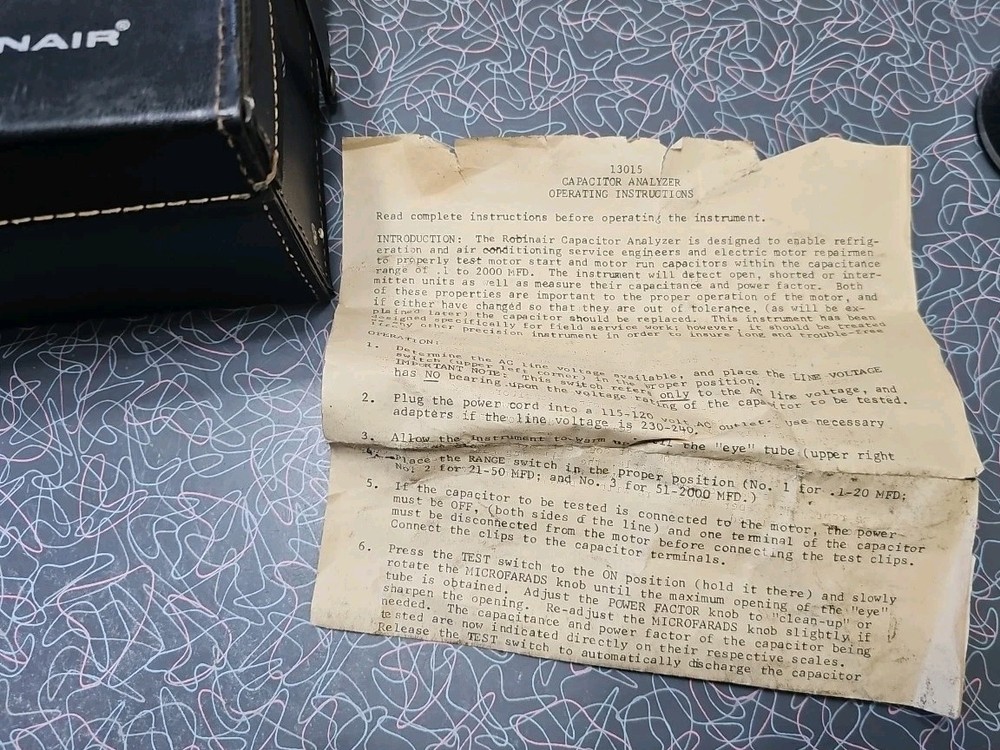 NAIR®
13015
CAPACITOR ANALYZER
OPERATING INSTRUCTIONS
Read complete instructions before operating the instrument.
INTRODUCTION: The Robinair Capacitor Analyzer is designed to enable refrig-
eration and air conditioning service engineers and electric motor repairmen
to properly test motor start and motor run capacitors within the capacitance
range of .1 to 2000 MFD. The instrument will detect open, shorted or inter-
mitten units as well as measure their capacitance and power factor. Both
of these properties are important to the proper operation of the motor, and
if either have changed so that they are out of tolerance, (as will be ex-
plained later) the capacitor should be replaced. This instrument has been
designed specifically for field service work; however, it should be treated
any other precision instrument in order to insure long and trouble-free
OPERATION:
1. Determine the AC line voltage available, and place the LINE VOLTAGE
switch (upper left corner) in the proper position.
IMPORTANT NOTE: This switch refers only to the AC line voltage, and
has NO bearing upon the voltage rating of the capacitor to be tested.
2. Plug the power cord into a 115-120 volt AC outlet- use necessary
adapters if the line voltage is 230-240.
3. Allow the instrument to warm the "eye" tube (upper right
4. Place the RANGE switch in the proper position (No. 1 for .1-20 MFD;
No. 2 for 21-50 MFD; and No. 3 for 51-2000 MFD.)
5. If the capacitor to be tested is connected to the motor, the power
must be OFF, (both sides of the line) and one terminal of the capacitor
must be disconnected from the motor before connecting the test clips.
Connect the clips to the capacitor terminals.
6. Press the TEST switch to the ON position (hold it there) and slowly
rotate the MICROFARADS knob until the maximum opening of the "eye"
tube is obtained. Adjust the POWER FACTOR knob to "clean-up" or
sharpen the opening. Re-adjust the MICROFARADS knob slightly if
needed. The capacitance and power factor of the capacitor being
tested are now indicated directly on their respective scales.
Release the TEST switch to automatically discharge the capacitor